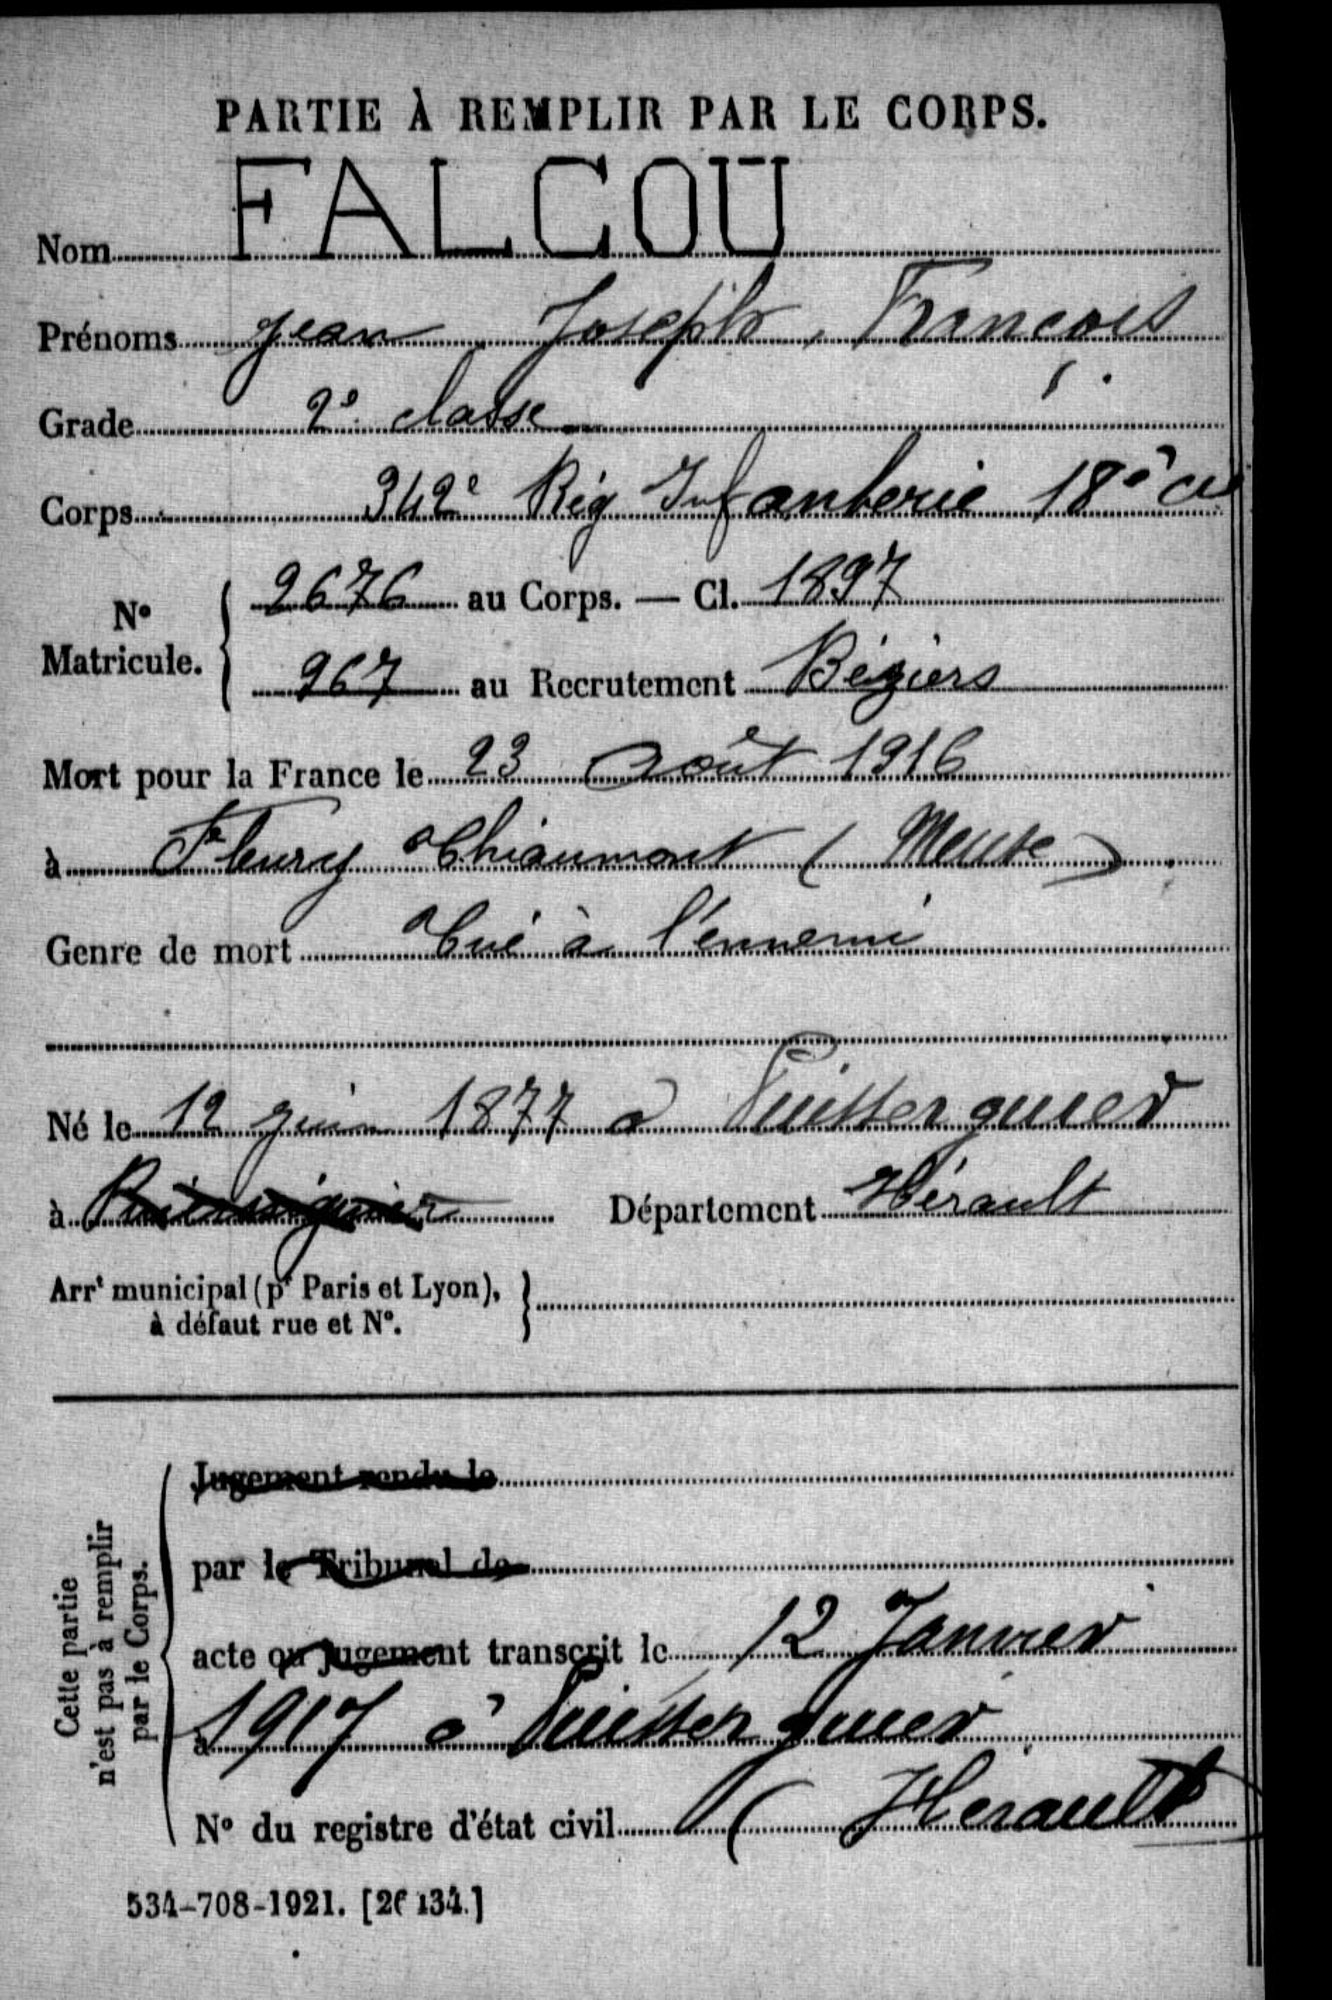 PARTIE À REMPLIR PAR LE CORPS.
Nom FALCOU
Prénoms Jean Joseph, François
Grade 2e classe
Corps 342e Rég Infanterie 18e Cie
No Matricule. 2676 au Corps. — Cl. 1897
967 au Recrutement Béziers
Mort pour la France le 23 Août 1916
à Fleury Thiaumont (Meuse)
Genre de mort Tué à l'ennemi
Né le 12 juin 1877 à Puisserguier
à Département Hérault
Arrt municipal (pr Paris et Lyon),
à défaut rue et No.
Cette partie
n'est pas à remplir
par le Corps.
Jugement rendu le
par le Tribunal de
acte ou jugement transcrit le 12 Janvier
à 1917 à Puisserguier
No du registre d'état civil (Hérault)
534-708-1921. [26134.]